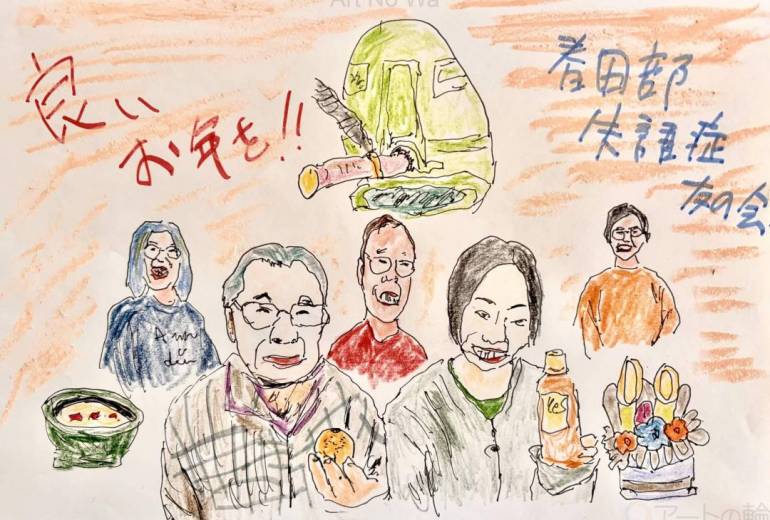 Art No Wa
良い
お年を!!
春日部
失語症
友の会
アートの輪